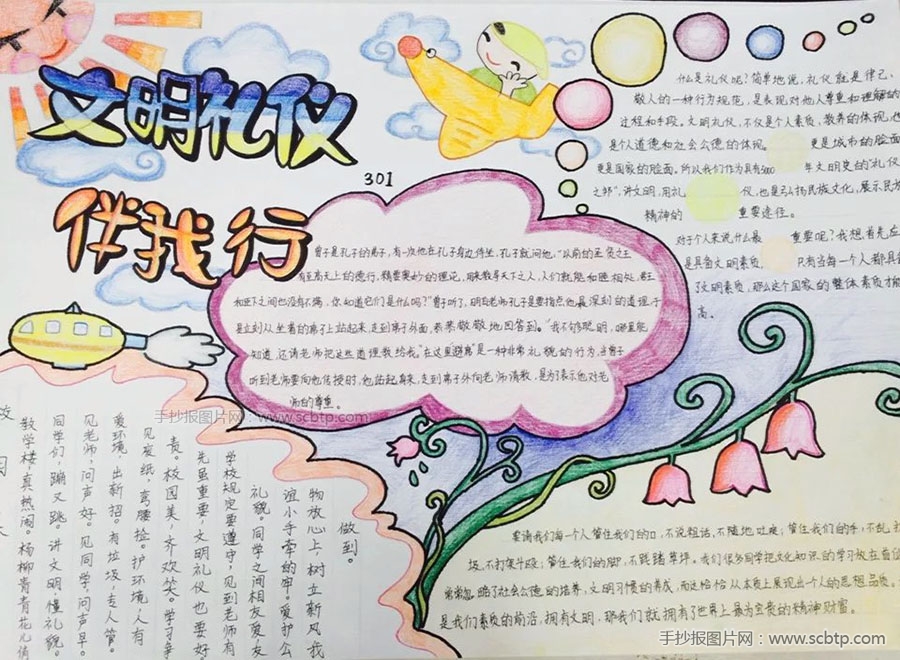 文明礼仪
伴我行
301
什么是礼仪呢？简单地说，礼仪就是律己、
敬人的一种行为规范，是表现对他人尊重和理解的
过程和手段。文明礼仪，不仅是个人素质、教养的体现，也
是个人道德和社会公德的体现。更是城市的脸面
更是国家的脸面。所以我们作为具有5000年文明史的"礼仪
之邦"，讲文明，用礼仪，也是弘扬民族文化，展示民族
精神的重要途径。
对于个人来说什么最重要呢？我想，首先应
是具备文明素质，只有当每一个人都具备
了文明素质，那么这个国家的整体素质才能
高。
曾子是孔子的弟子，有一次他在孔子身边侍坐，孔子就问他："以前的圣贤之王
有至高无上的德行，精要奥妙的理论，用来教导天下之人，人们就能和睦相处，君王
和臣下之间也没有不满，你知道它们是什么吗？"曾子听了，明白老师孔子是要指点他最深刻的道理，于
是立刻从坐着的席子上站起来，走到席子外面，恭恭敬敬地回答到。"我不够聪明，哪里能
知道，还请老师把这些道理教给我。"在这里"避席"是一种非常礼貌的行为，当曾子
听到老师要向他传授时，他站起身来，走到席子外向老师请教，是为了表示他对老
师的尊重。
手抄报图片网：www.scbtp.com
做到。
物放心上，树立新风我
谊小手牵的牢。爱护公
礼貌。同学之间相友爱，友
学校规定要遵守，见到老师有
先虽重要，文明礼仪也要好
责。校园美，齐欢笑。学习亲
见废纸，弯腰捡。护环境，人有
爱环境，出新招。有垃圾，专人管。
见老师，问声好。见同学，问声早。
同学们，蹦又跳。讲文明，懂礼貌。
教学楼，真热闹。杨柳青青花儿俏
要请我们每一个人管住我们的口，不说粗话，不随地吐痰；管住我们的手，不乱扔
圾，不打架斗殴；管住我们的脚，不践踏草坪。我们很多同学把文化知识的学习放在首位
常常忽略了社会公德的培养，文明习惯的养成，而这恰恰从本质上展现出一个人的思想品质。
是我们素质的前沿，拥有文明，那我们就拥有了世界上最为宝贵的精神财富。
手抄报图片网：www.scbtp.com